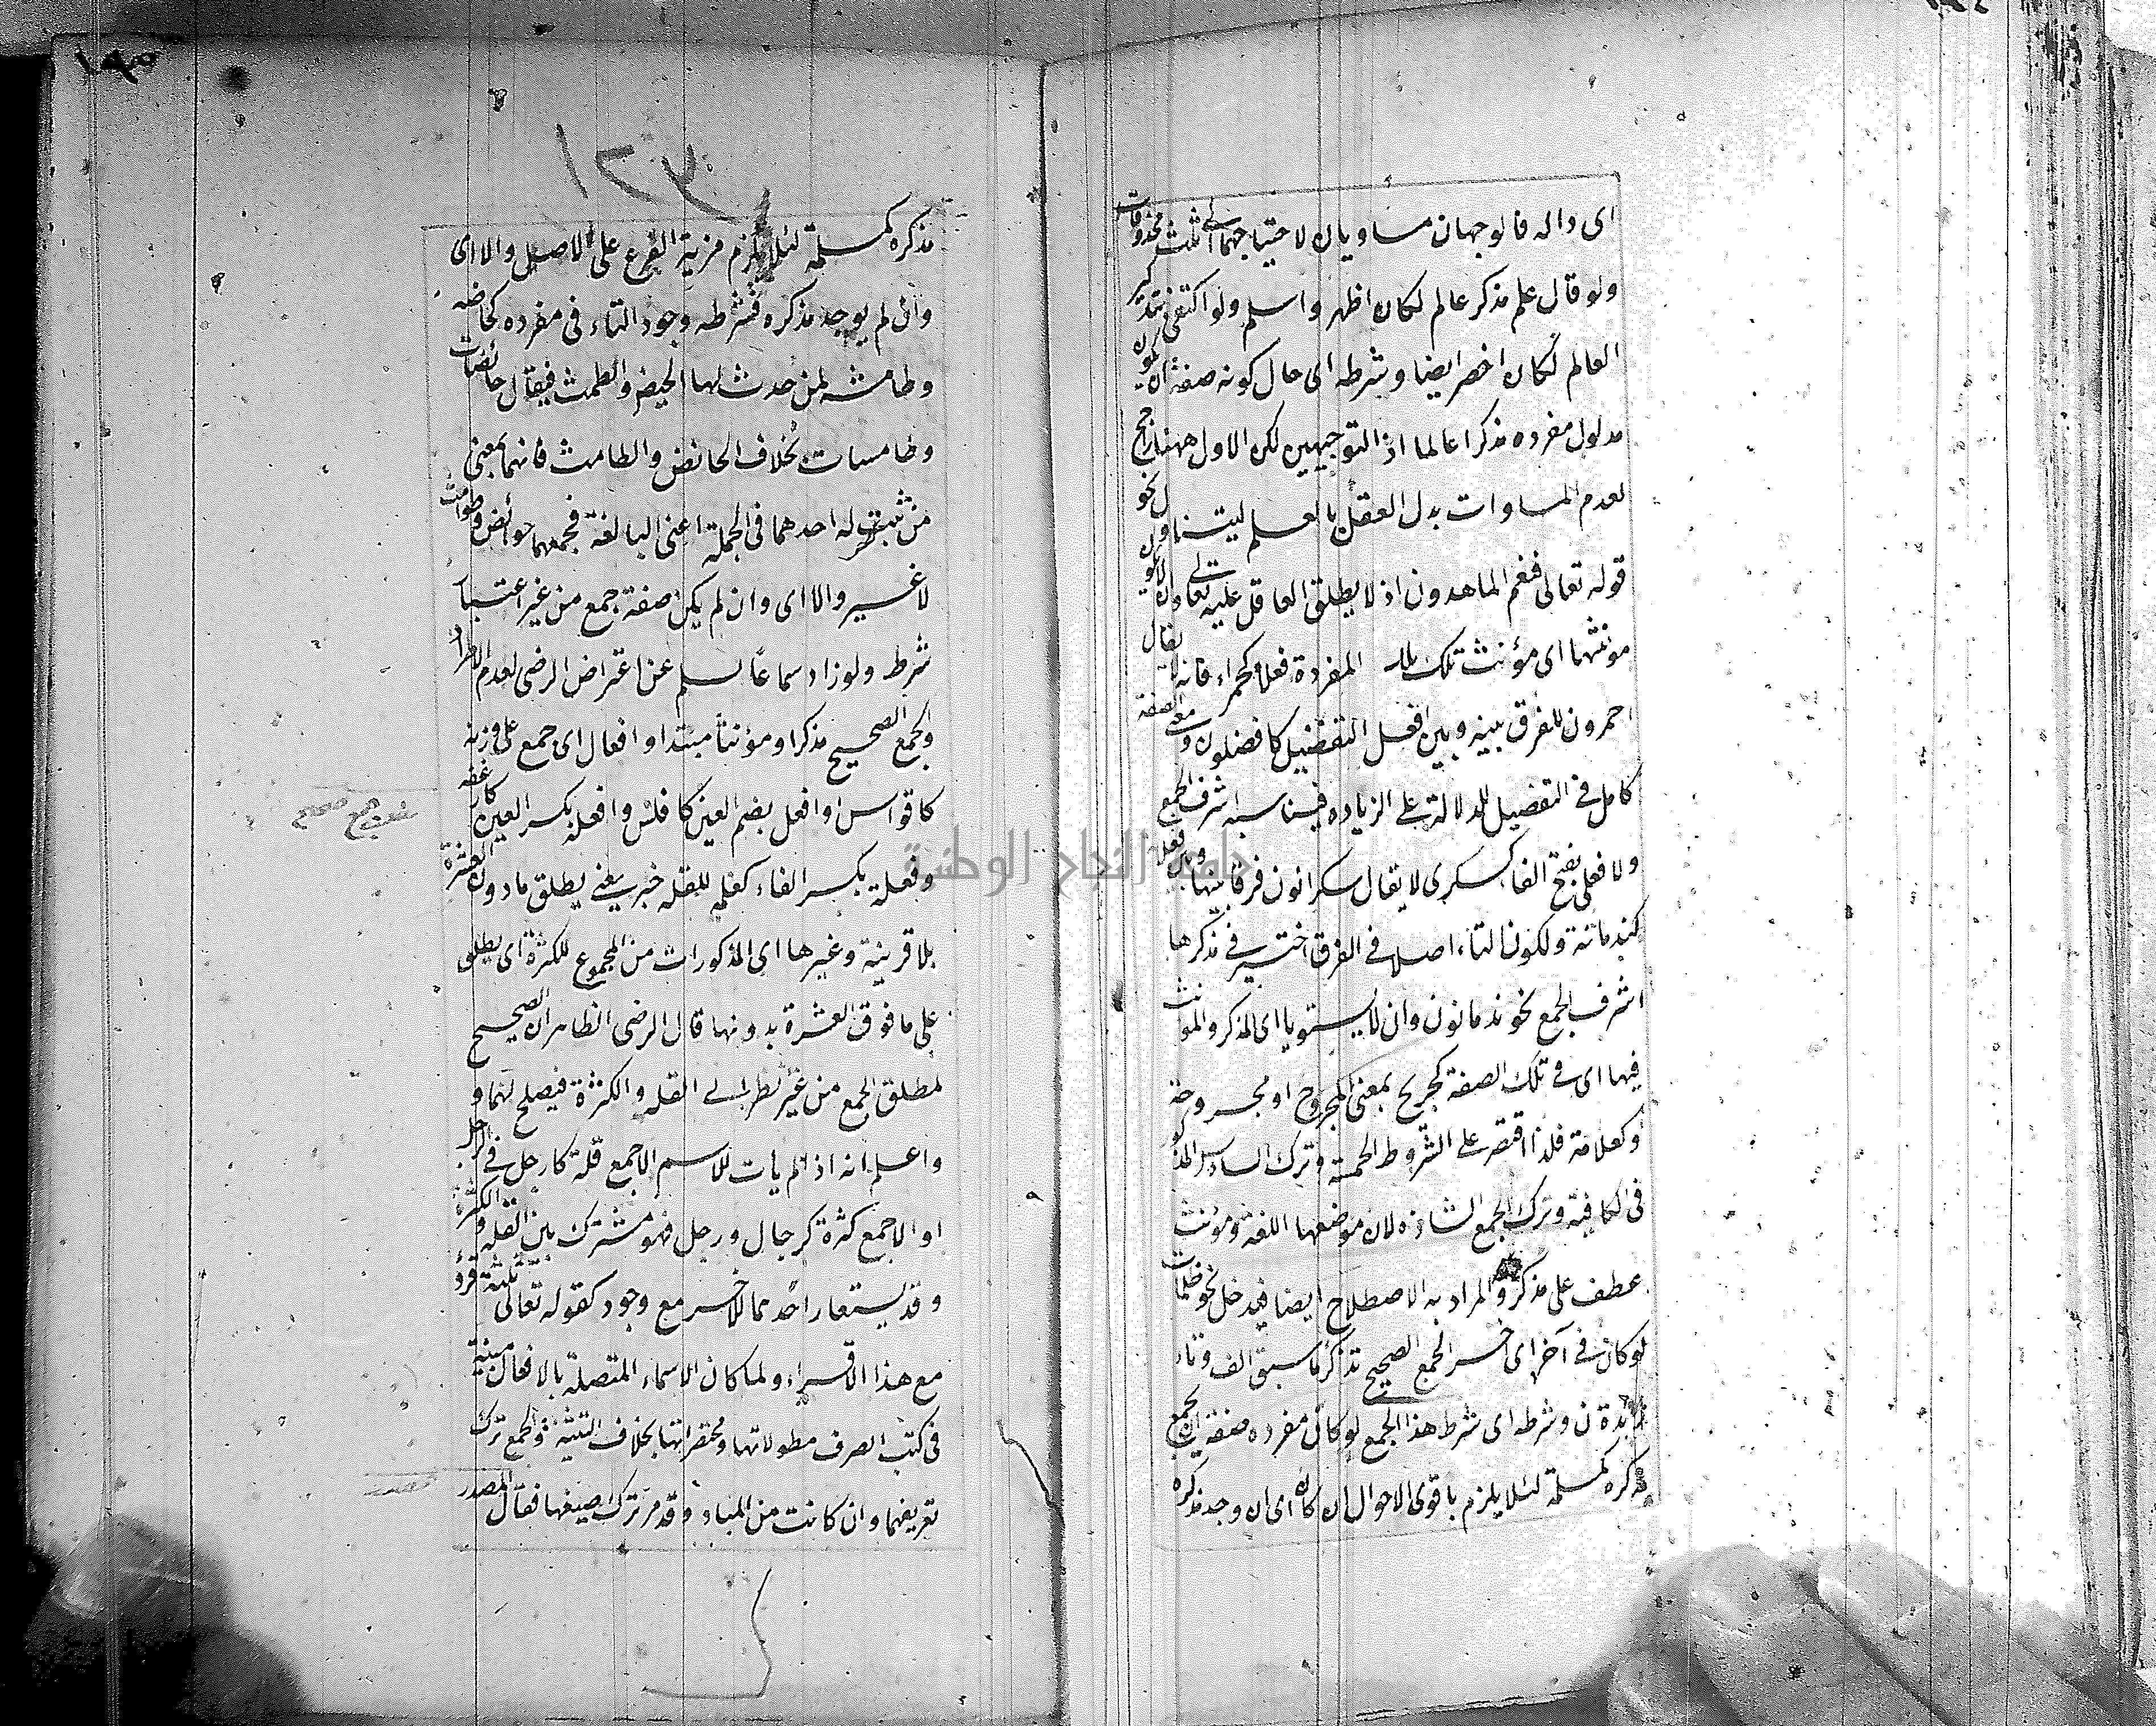 اى داله فالوجهان مساويان لاحتياجهما الى ثلث محذوفات
ولو قال علم مذكر عالم لكان اظهر واسلم ولو اكتفى بتذكير
العالم لكان اخصر ايضا وشرطه اى حال كونه صفة ان يكون
مدلول مفرده مذكرا عالما اذ التوجيهين لكن الاول ههنا راجح
لعدم المساوات بدل العقل بالعلم ليتناول نحو
قوله تعالى فنعم الماهدون اذ لا يطلق العاقل عليه تعالى وان لا يكون
مؤنثها اى مؤنث تلك المفردة فعلاء كحمراء فانه لا يقال
احمرون للفرق بينه وبين افعل التفضيل كافضلون ومعنى الصفة
كامل فى التفضيل للدلالة على الزيادة فيناسبه اشرف الجمع
ولا فعلى بفتح الفا كسكرى لا يقال سكرانون فرقا بينها وبين فعلان
كندمانة ولكون التاء اصلا فى الفرق اختير فى مذكرها
اشرف الجمع نحو ندمانون وان لا يستويا اى المذكر والمونث
فيها اى فى تلك الصفة كجريح بمعنى المجروح او مجروحة
وكعلامة فلذا اقتصر على الشروط الخمسة وترك السادس المذكور
فى الكافية وترك الجمع الشاذه لان موضعها اللغة ومؤنث
عطف على مذكر والمراد به الاصطلاح ايضا فيدخل نحو ظلمات
لو كان فى آخر اى خسر الجمع الصحيح تذكر ما سبق الف وتاء
زائدة ن وشرطه اى شرط هذا الجمع لو كان مفرده صفة ان يجمع
مذكره كمسلمة لئلا يلزم باقوى الاحوال ان كان اى ان وجد مذكره
١٢٣
مذكره كمسلمة لئلا يلزم مزية الفرع على الاصل والا اى
وان لم يوجد مذكره فشرطه وجود التاء فى مفرده كحائضه
وطامثه لمن حدث لها الحيض والطمث فيقال حائضات
وطامسات بخلاف الحائض والطامث فانهما بمعنى
من ثبت له احدهما فى الجملة اعنى البالغة فجمعهما حوائض وطوامث
لا غير والا اى وان لم يكن صفة جمع من غير اعتبار
شرط ولو زاد سماعا لسلم عن اعتراض الرضى لعدم الاطراد
والجمع الصحيح مذكرا ومؤنثا مبتدا وافعال اى جمع على وزنه
كاقواس وافعل بضم العين كافلس وافعلة بكسر العين كارغفه
وفعلة بكسر الفاء كغلمه للقله خبر يعنى يطلق ما دون العشرة
بلا قرينة وغيرها اى المذكورات من المجموع للكثرة اى يطلق
على ما فوق العشرة بدونها قال الرضى الظاهر ان الصحيح
لمطلق الجمع من غير نظر الى القله والكثرة فيصلح لهما و
واعلم انه اذا لم يات للاسم الا جمع قلة كارجل فى الرجل
او الا جمع كثرة كرجال ورجل فهو مشترك بين القله والكثرة
وقد يستعار احدهما للاخر مع وجود كقوله تعالى ثلثة قروء
مع هذا الاقراء ولما كان الاسماء المتصلة بالافعال مبنية
فى كتب الصرف مطولاتها ومختصراتها بخلاف التثنية والجمع ترك
تعريفها وان كانت من المباد وقد مر ترك صيغها فقال المصدر
جمع صحيح
جامعة النجاح الوطنية